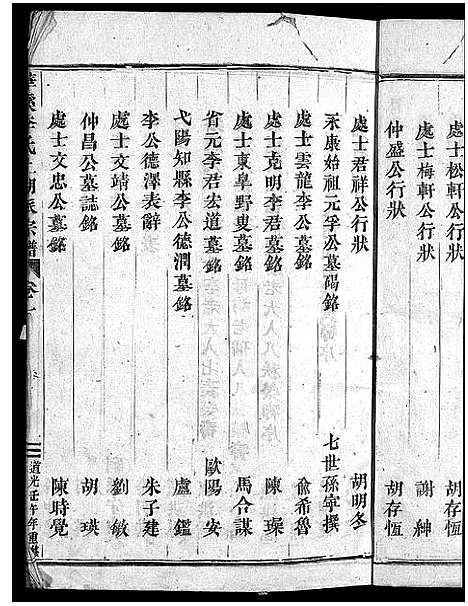 處士松軒公行狀 胡存恆
處士梅軒公行狀 謝紳
仲盛公行狀 胡存恆
處士君祥公行狀 胡明冬
永康始祖元孚公墓碣銘 七世孫寧撰
處士雲龍李公墓銘 俞希魯
處士克明李君墓銘 陳璪
處士東皐野叟墓銘 馬合謀
省元李君宏道墓銘 歐陽安
弋陽知縣李公德潤墓銘 盧鑑
李公德澤表辭 朱子建
處士文靖公墓銘 劉敏
仲昌公墓誌銘 胡瑛
處士文忠公墓銘 陳時覺
氏上胡派宗譜 卷
道光壬午年重修